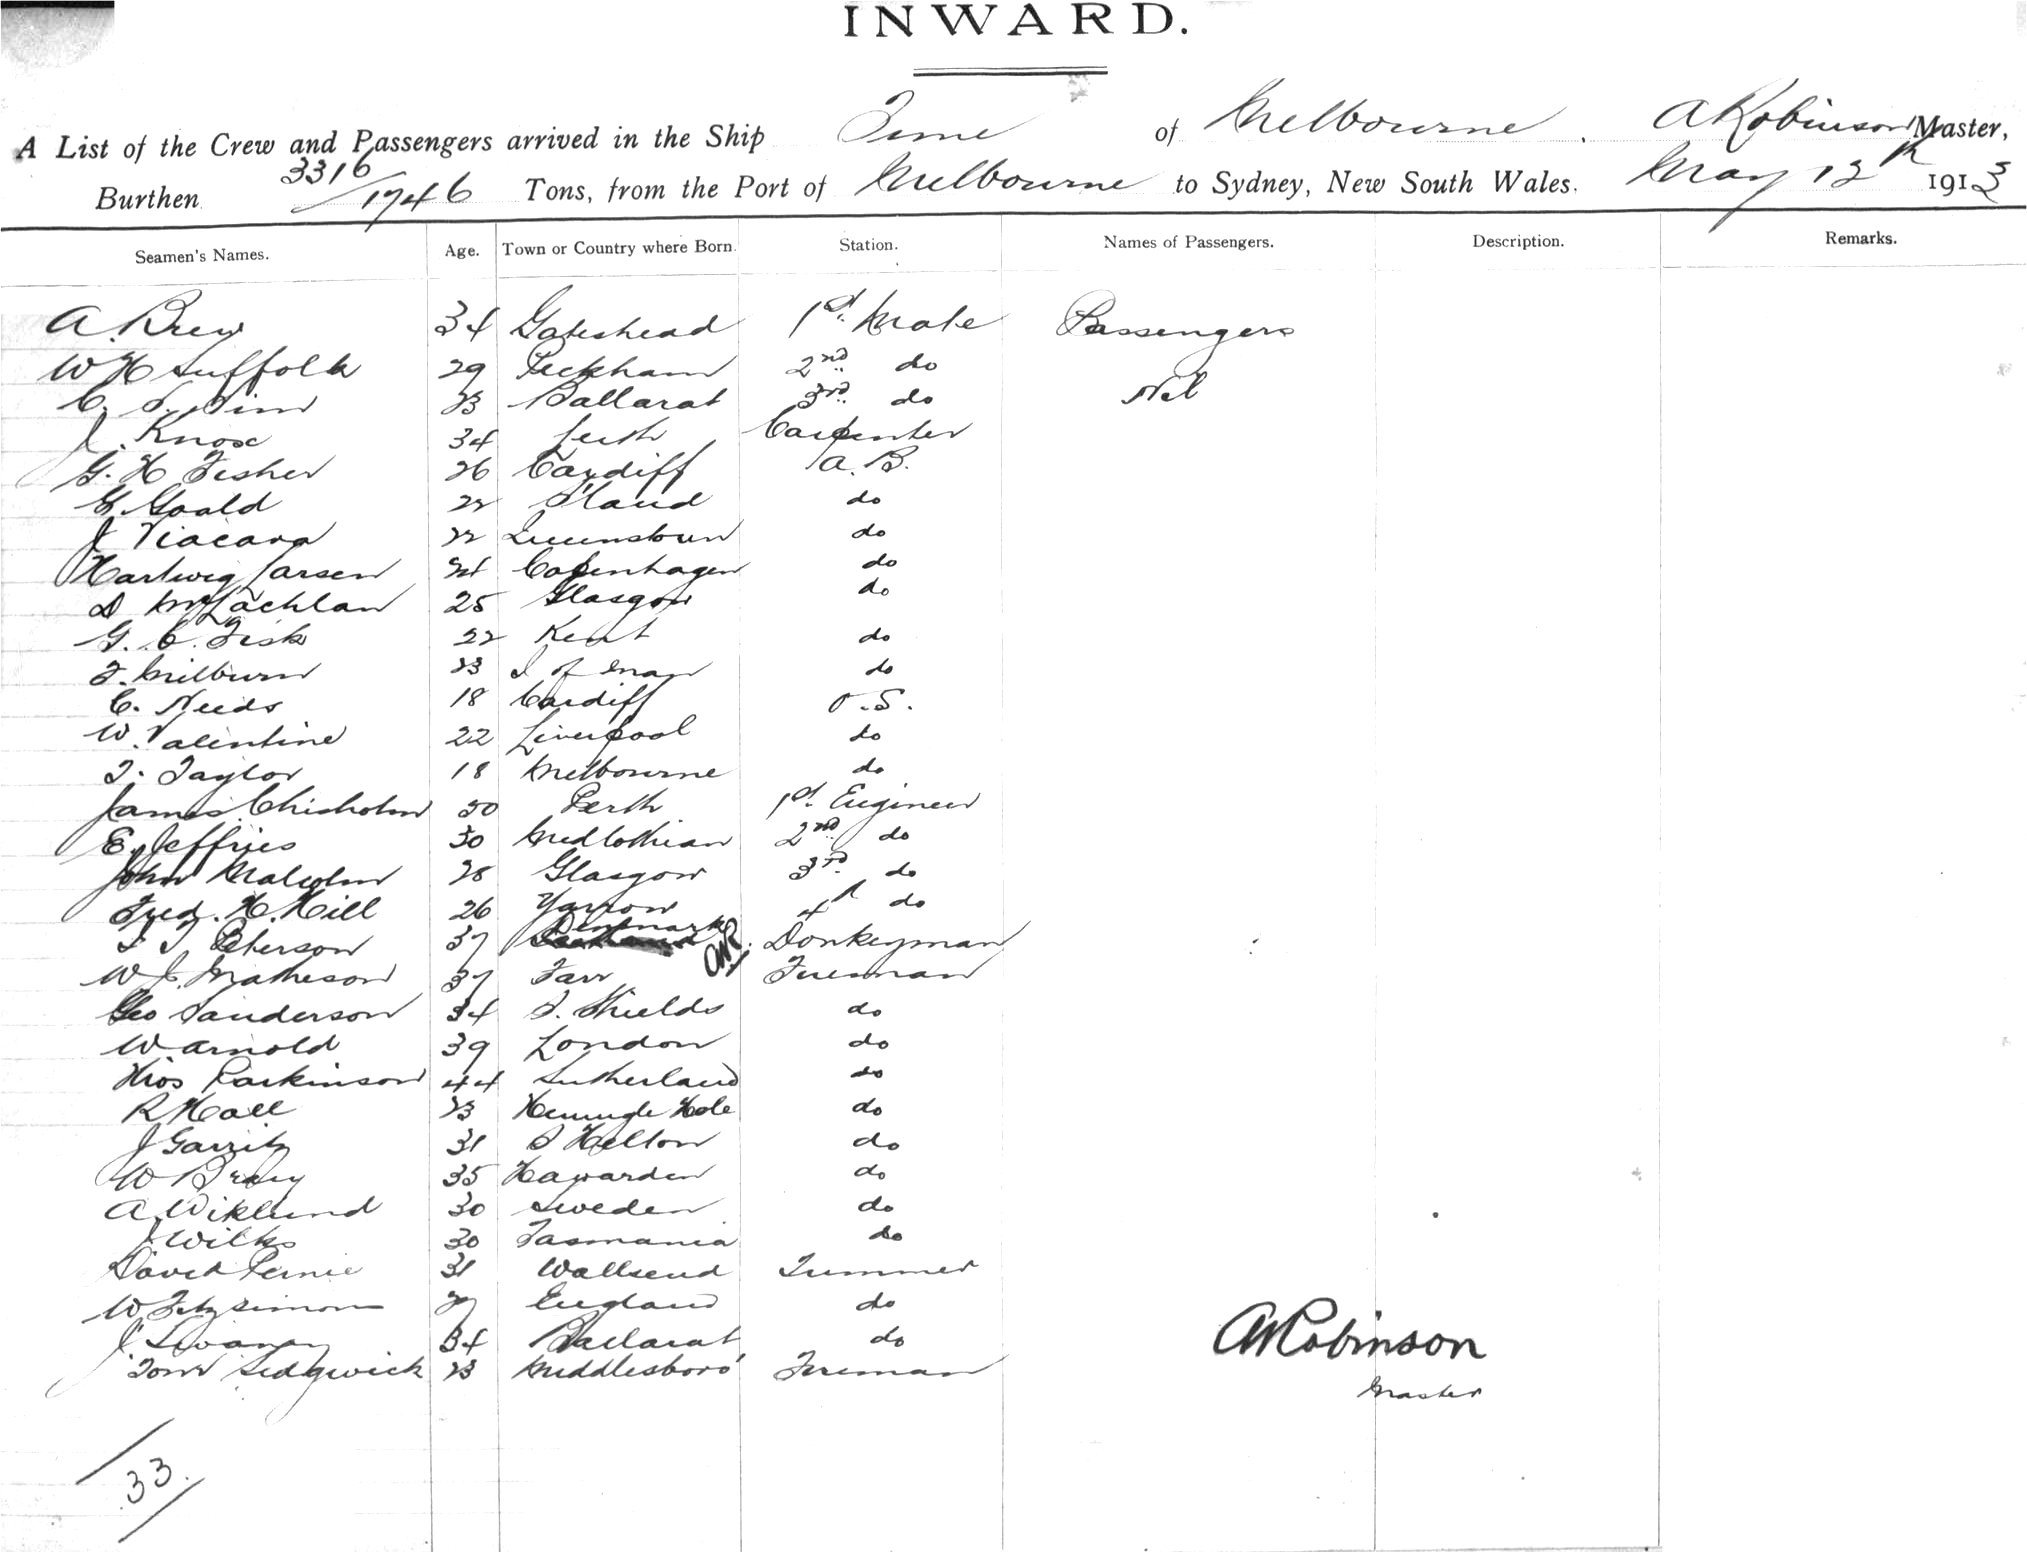 INWARD.
A List of the Crew and Passengers arrived in the Ship Time of Melbourne. A Robinson Master,
Burthen 3316/1746 Tons, from the Port of Melbourne to Sydney, New South Wales. May 12th 1913
Seamen's Names. Age. Town or Country where Born. Station. Names of Passengers. Description. Remarks.
A. Brew 34 Gateshead 1st. Mate Passengers
W H Suffolk 29 Peckham 2nd do
C. S. Sim 23 Ballarat 3rd do Nil
J. Knox 34 Leith Carpenter
G. H Fisher 26 Cardiff A. B.
G. Goald 22 S'land do
J Viacava 22 Queenstown do
Hartwig Larsen 24 Copenhagen do
D McLachlan 25 Glasgow do
G. C. Fisk 22 Kent do
F. Milburn 23 I of Man do
C. Needs 18 Cardiff O.S.
W. Valentine 22 Liverpool do
T. Taylor 18 Melbourne do
James Chisholm 50 Perth 1st. Engineer
E. Jeffries 30 Midlothian 2nd do
John Malcolm 28 Glasgow 3rd. do
Fred. H. Hill 26 Yarrow 4th do
Peterson 37 Denmark AWR. Donkeyman
W J. Matheson 37 Farr Fireman
Geo Sanderson 34 S. Shields do
W. Arnold 39 London do
Thos Parkinson 44 Sutherland do
R Hall 23 Hole do
J Garrity 31 S Hetton do
W Bray 35 Hawarden do
A. Wiklund 30 Sweden do
J. Wilks 30 Tasmania do
David Pernie 31 Wallsend Trimmer
W Fitzsimons England do
J. Swaney 34 Ballarat do
Tom Sedgwick 23 Middlesboro' Fireman
AWRobinson
Master
33.